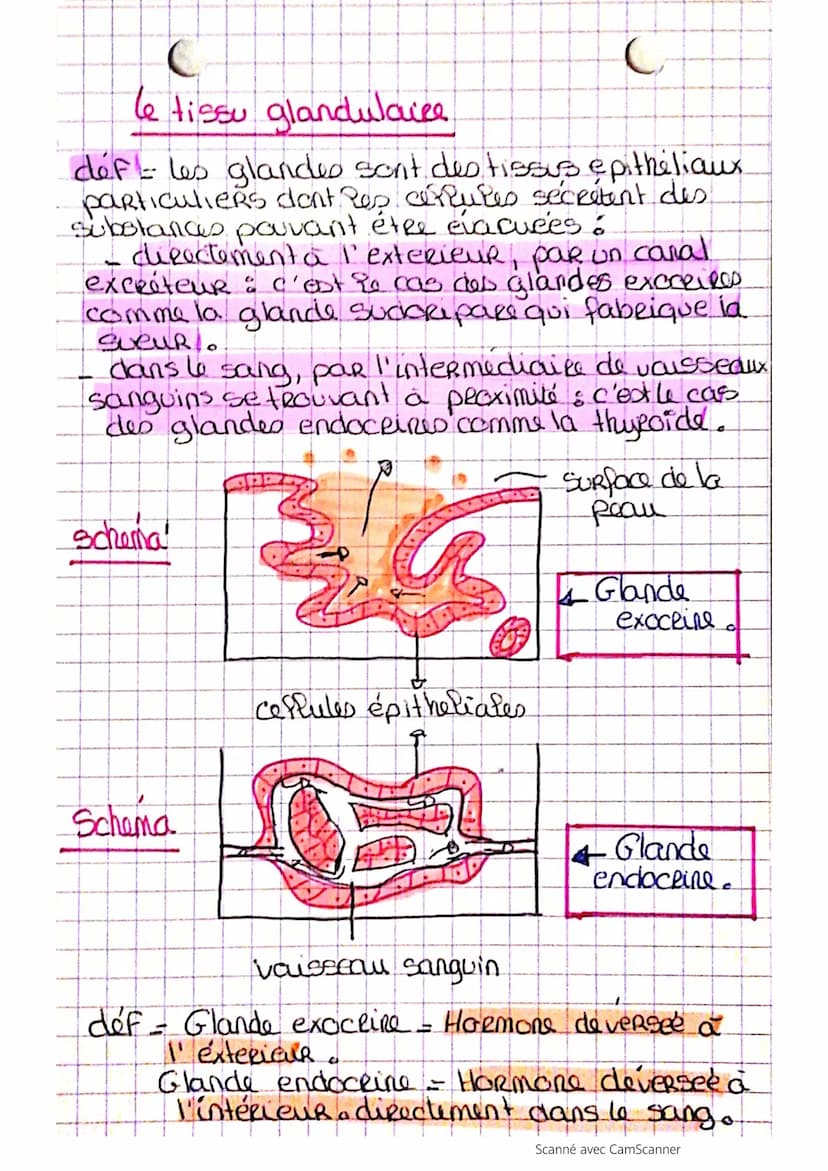 Le tissu glandulaire
déf = Les glandes sont des tissus épithéliaux
particuliers dont les cellules sécrètent des
substances pouvant être évacuées :
- directement à l'exterieur, par un canal
excréteur : c'est le cas des glandes exocrines
comme la glande sudoripare qui fabrique la
sueur.
- dans le sang, par l'intermédiaire de vaisseaux
sanguins se trouvant à proximité : c'est le cas
des glandes endocrines comme la thyroïde.
Surface de la
peau
schéma
Glande
exocrine.
cellules épitheliales
Schéma
Glande
endocrine.
vaisseau sanguin
déf = Glande exocrine = Hormone déversée à
l'éxterieur.
Glande endocrine = Hormone déversée à
l'intérieur. directement dans le sang.
Scanné avec CamScanner